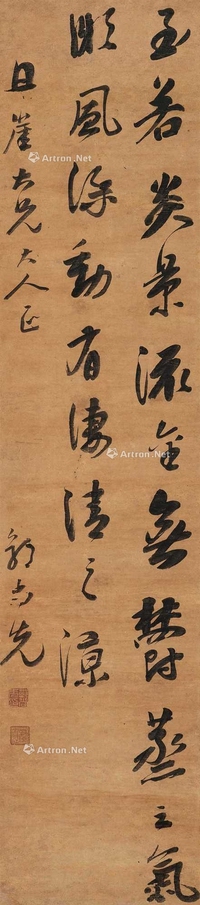 至若炎景流金無鬱蒸之氣
飂風深動有淒清之涼
旦崖大兄大人正
郭尚先
Artron.Net
Artron.Net
Artron.Net
Artron.Net